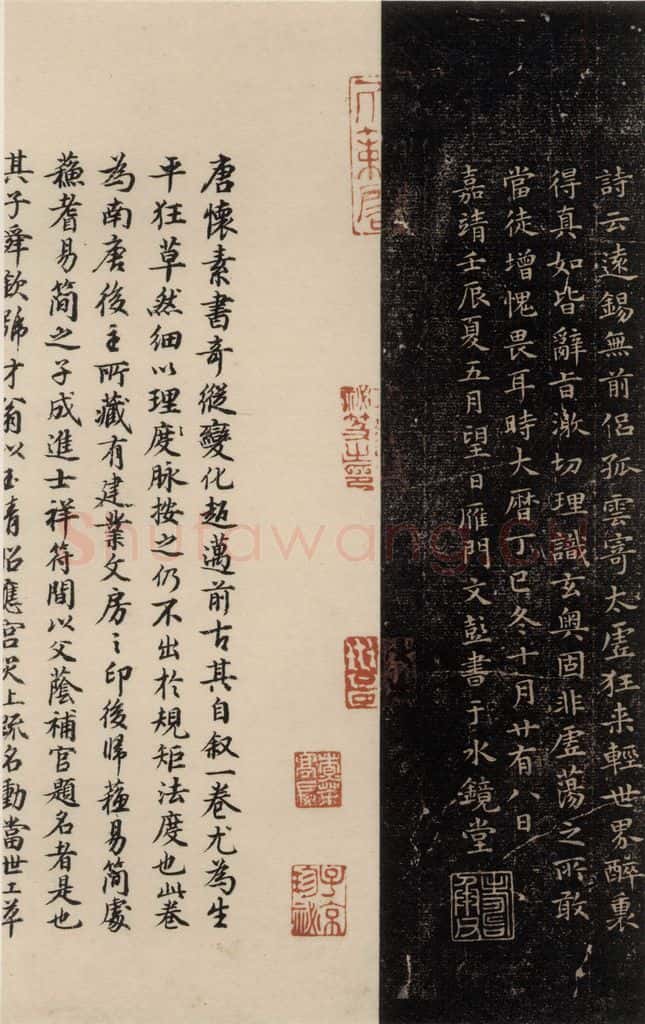 詩云遠錫無前侶孤雲寄太虛狂来輕世界醉裏
得真如皆辭旨激切理識玄奧固非虛蕩之所敢
當徒增愧畏耳時大曆丁巳冬十月廿有八日
嘉靖壬辰夏五月望日雁門文彭書于水鏡堂
子京珍祕
唐懷素書奇縱變化超邁前古其自叙一卷尤為生
平狂草然細以理度脉按之仍不出於規矩法度也此卷
為南唐後主所藏有建業文房之印後歸蘓易簡處
蘓耆易简之子成進士祥符間以父蔭補官題名者是也
其子舜欽號才翁以玉清昭應宫災上疏名動當世工草
Shufawang.cn